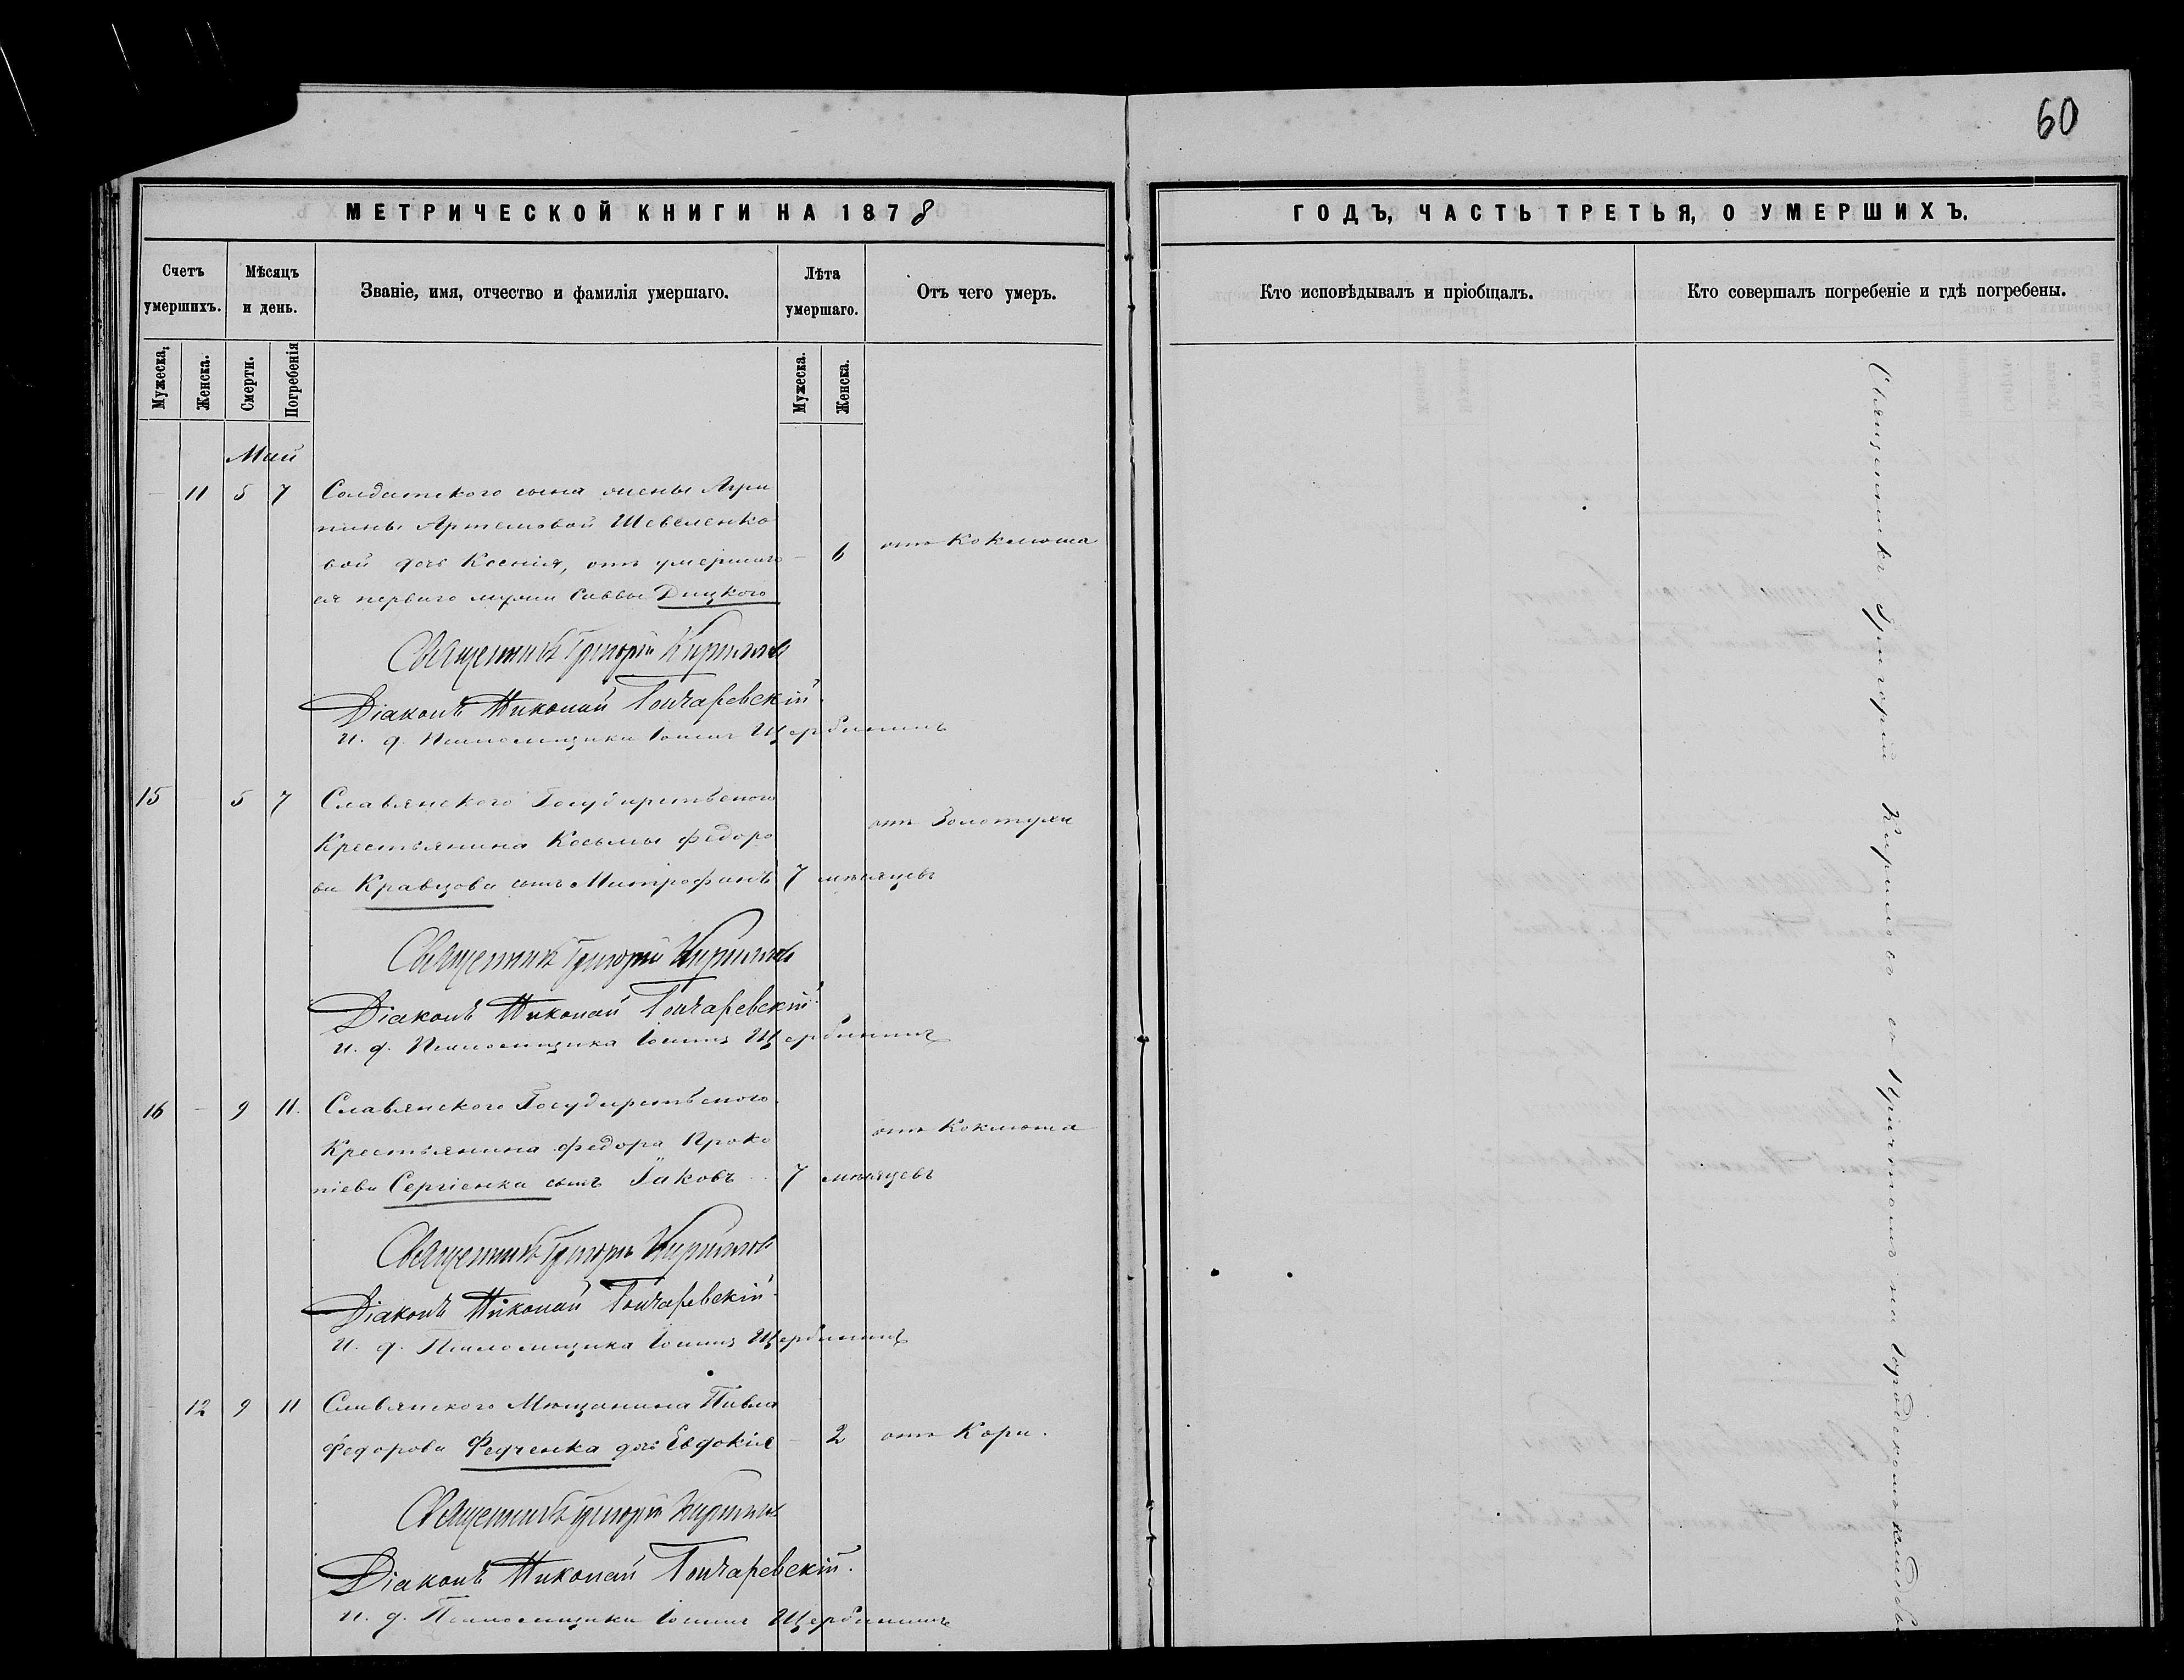 60
МЕТРИЧЕСКОЙ КНИГИ НА 1878
ГОДЪ, ЧАСТЬ ТРЕТЬЯ, О УМЕРШИХЪ.
Счетъ умершихъ.
Мѣсяцъ и день.
Званіе, имя, отчество и фамилія умершаго.
Лѣта умершаго.
Отъ чего умеръ.
Кто исповѣдывалъ и пріобщалъ.
Кто совершалъ погребеніе и гдѣ погребены.
Мужеска.
Женска.
Смерти.
Погребенія
Мужеска.
Женска.
Май
11 5 7 Солдатского сына жены Агри
пины Артемовой Шевеленко
вой дочь Ксенія, отъ умершаго 6 отъ Коклюша
ея перваго мужа Саввы Дицкого
Священникъ Григорій Кириловъ
Діаконъ Николай Гончаревскій
И. д. Псаломщика Іоаннъ Щербининъ
15 5 7 Славянского Государственого
Крестьянина Косьмы Федоро отъ Золотухи
ва Кравцова сынъ Митрофанъ 7 мѣсяцевъ
Священникъ Григорій Кириловъ
Діаконъ Николай Гончаревскій
И. д. Псаломщика Іоаннъ Щербининъ
16 9 11. Славянского Государственого
Крестьянина Федора Проко отъ Коклюша
піева Сергіенка сынъ Іаковъ 7 мѣсяцевъ
Священникъ Григорій Кириловъ
Діаконъ Николай Гончаревскій
И. д. Псаломщика Іоаннъ Щербининъ
12 9 11 Славянского Мѣщанина Павла
Федорова Федченка дочь Евдокія 2 отъ Кори.
Священникъ Григорій Кириловъ
Діаконъ Николай Гончаревскій.
И. д. Псаломщика Іоаннъ Щербининъ
Священникъ Григорій Кириловъ съ Причтомъ на Городскомъ кладбищѣ